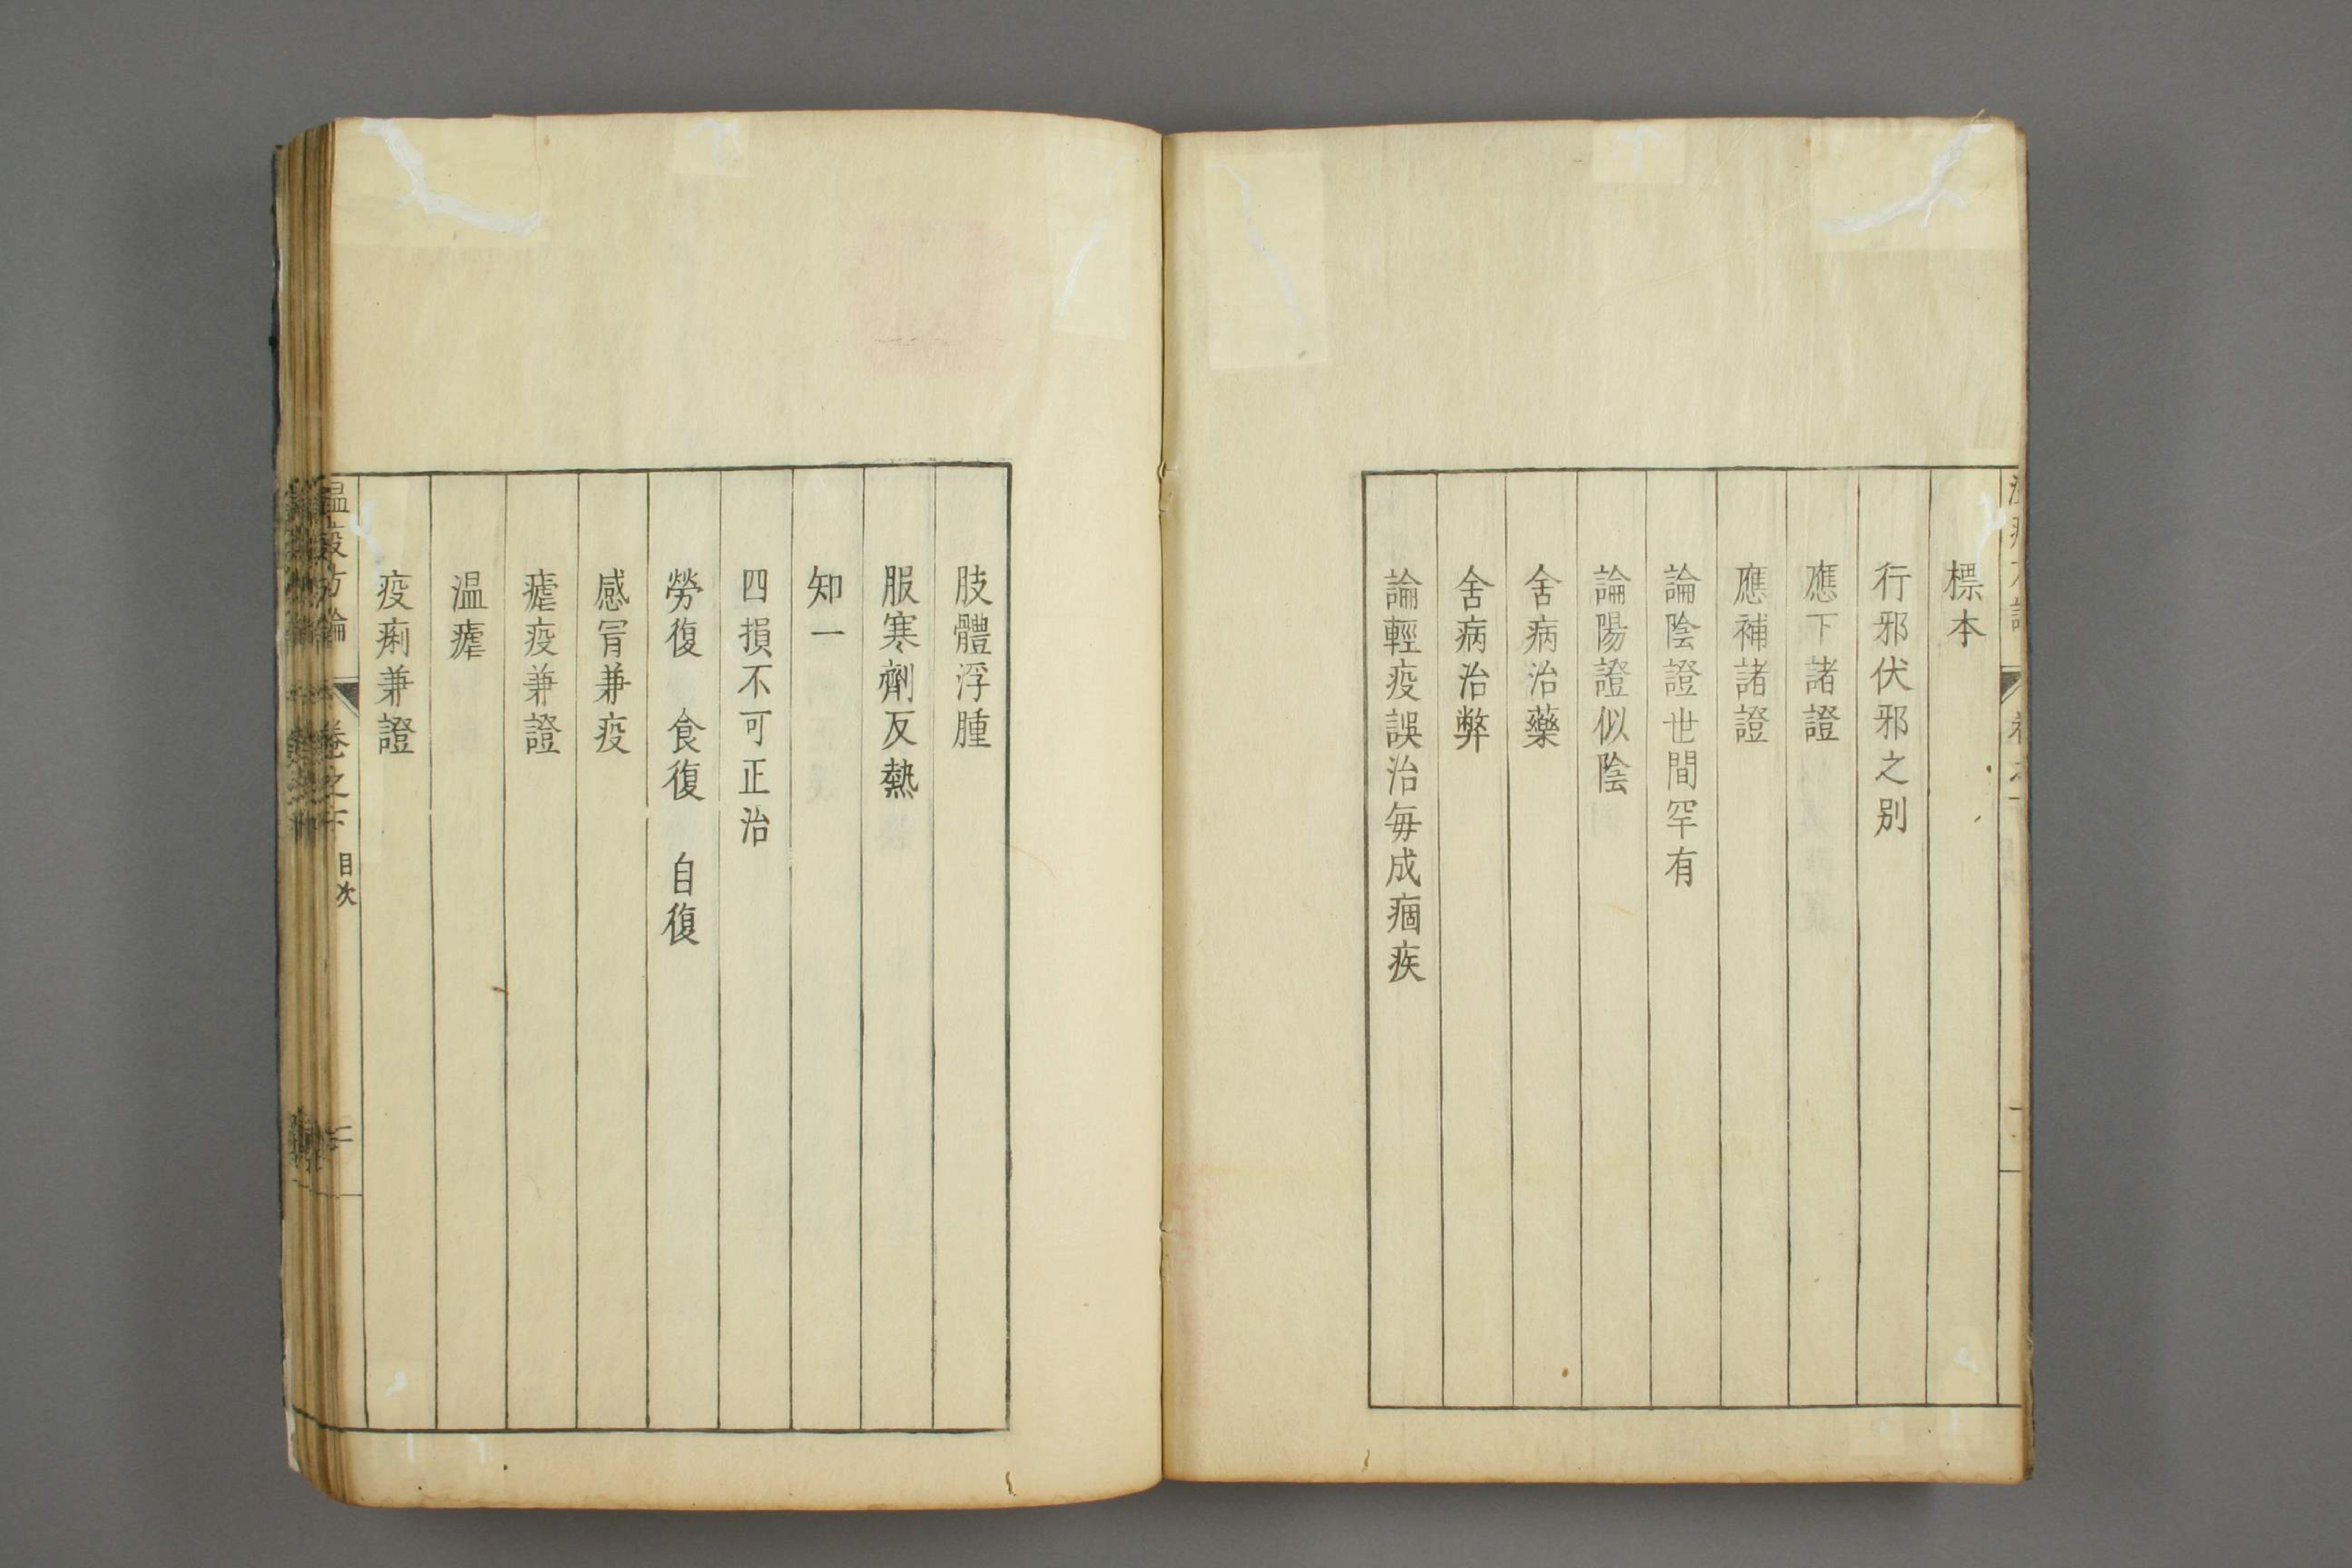 標本
行邪伏邪之别
應下諸證
應補諸證
論陰證世間罕有
論陽證似陰
舍病治藥
舍病治弊
論輕疫誤治每成痼疾
肢體浮腫
服寒劑反熱
知一
四損不可正治
勞復 食復 自復
感冒兼疫
瘧疫兼證
温瘧
疫痢兼證
温疫方論 卷之下 目次 二